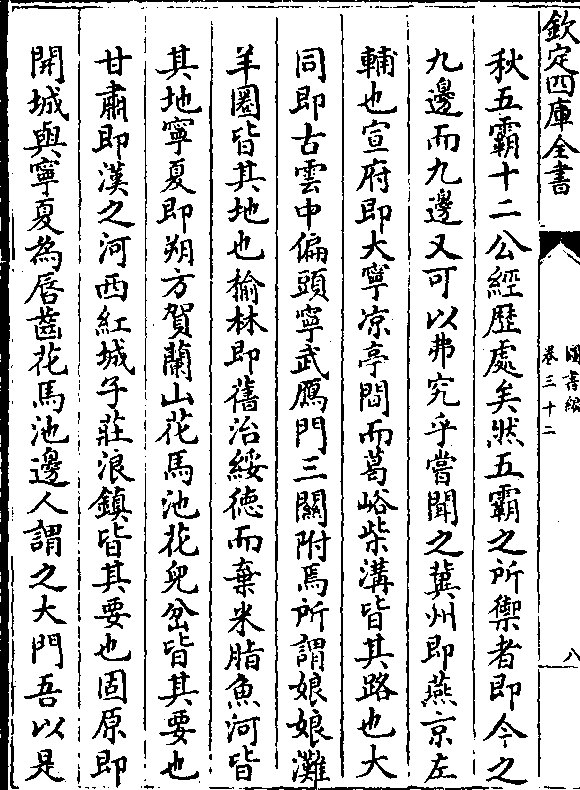 欽定四庫全書
圖書編
卷三十二
八
秋五霸十二公經歷處矣然五霸之所禦者即今之
九邊而九邊又可以弗究乎嘗聞之冀州即燕京左
輔也宣府即大寧凉亭間而葛峪柴溝皆其路也大
同即古雲中偏頭寧武鴈門三關附焉所謂娘娘灘
羊圈皆其地也榆林即舊治綏德而棄米脂魚河皆
其地寧夏即朔方賀蘭山花馬池花兒岔皆其要也
甘肅即漢之河西紅城子莊浪鎮皆其要也固原即
開城與寧夏為唇齒花馬池邊人謂之大門吾以是